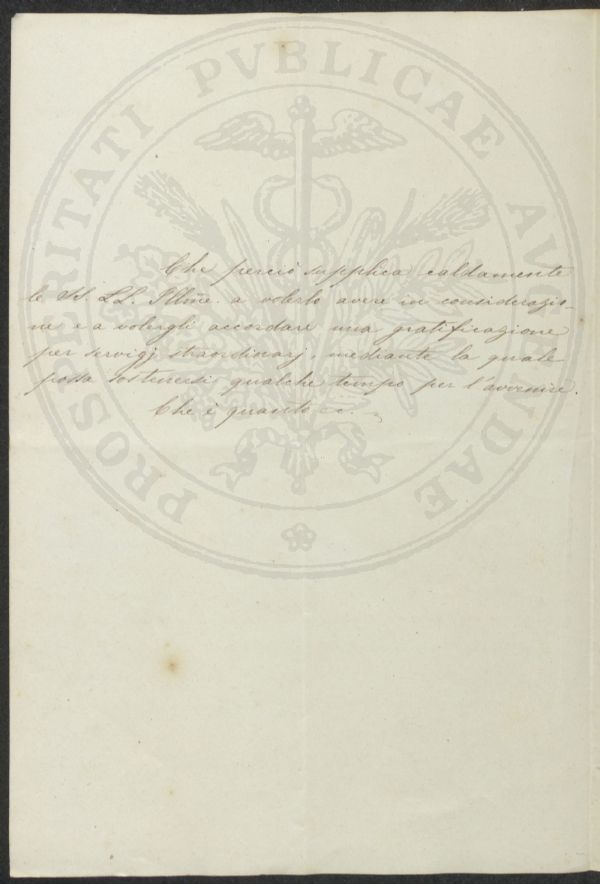 PROSPERITATI PVBLICAE AVGENDAE
Che perciò supplica caldamente
le SS. LL. Illme. a volerlo avere in considerazio-
ne e a volergli accordare una gratificazione
per servigj straordinarj, mediante la quale
possa sostenersi qualche tempo per l'avvenire.
Che è quanto